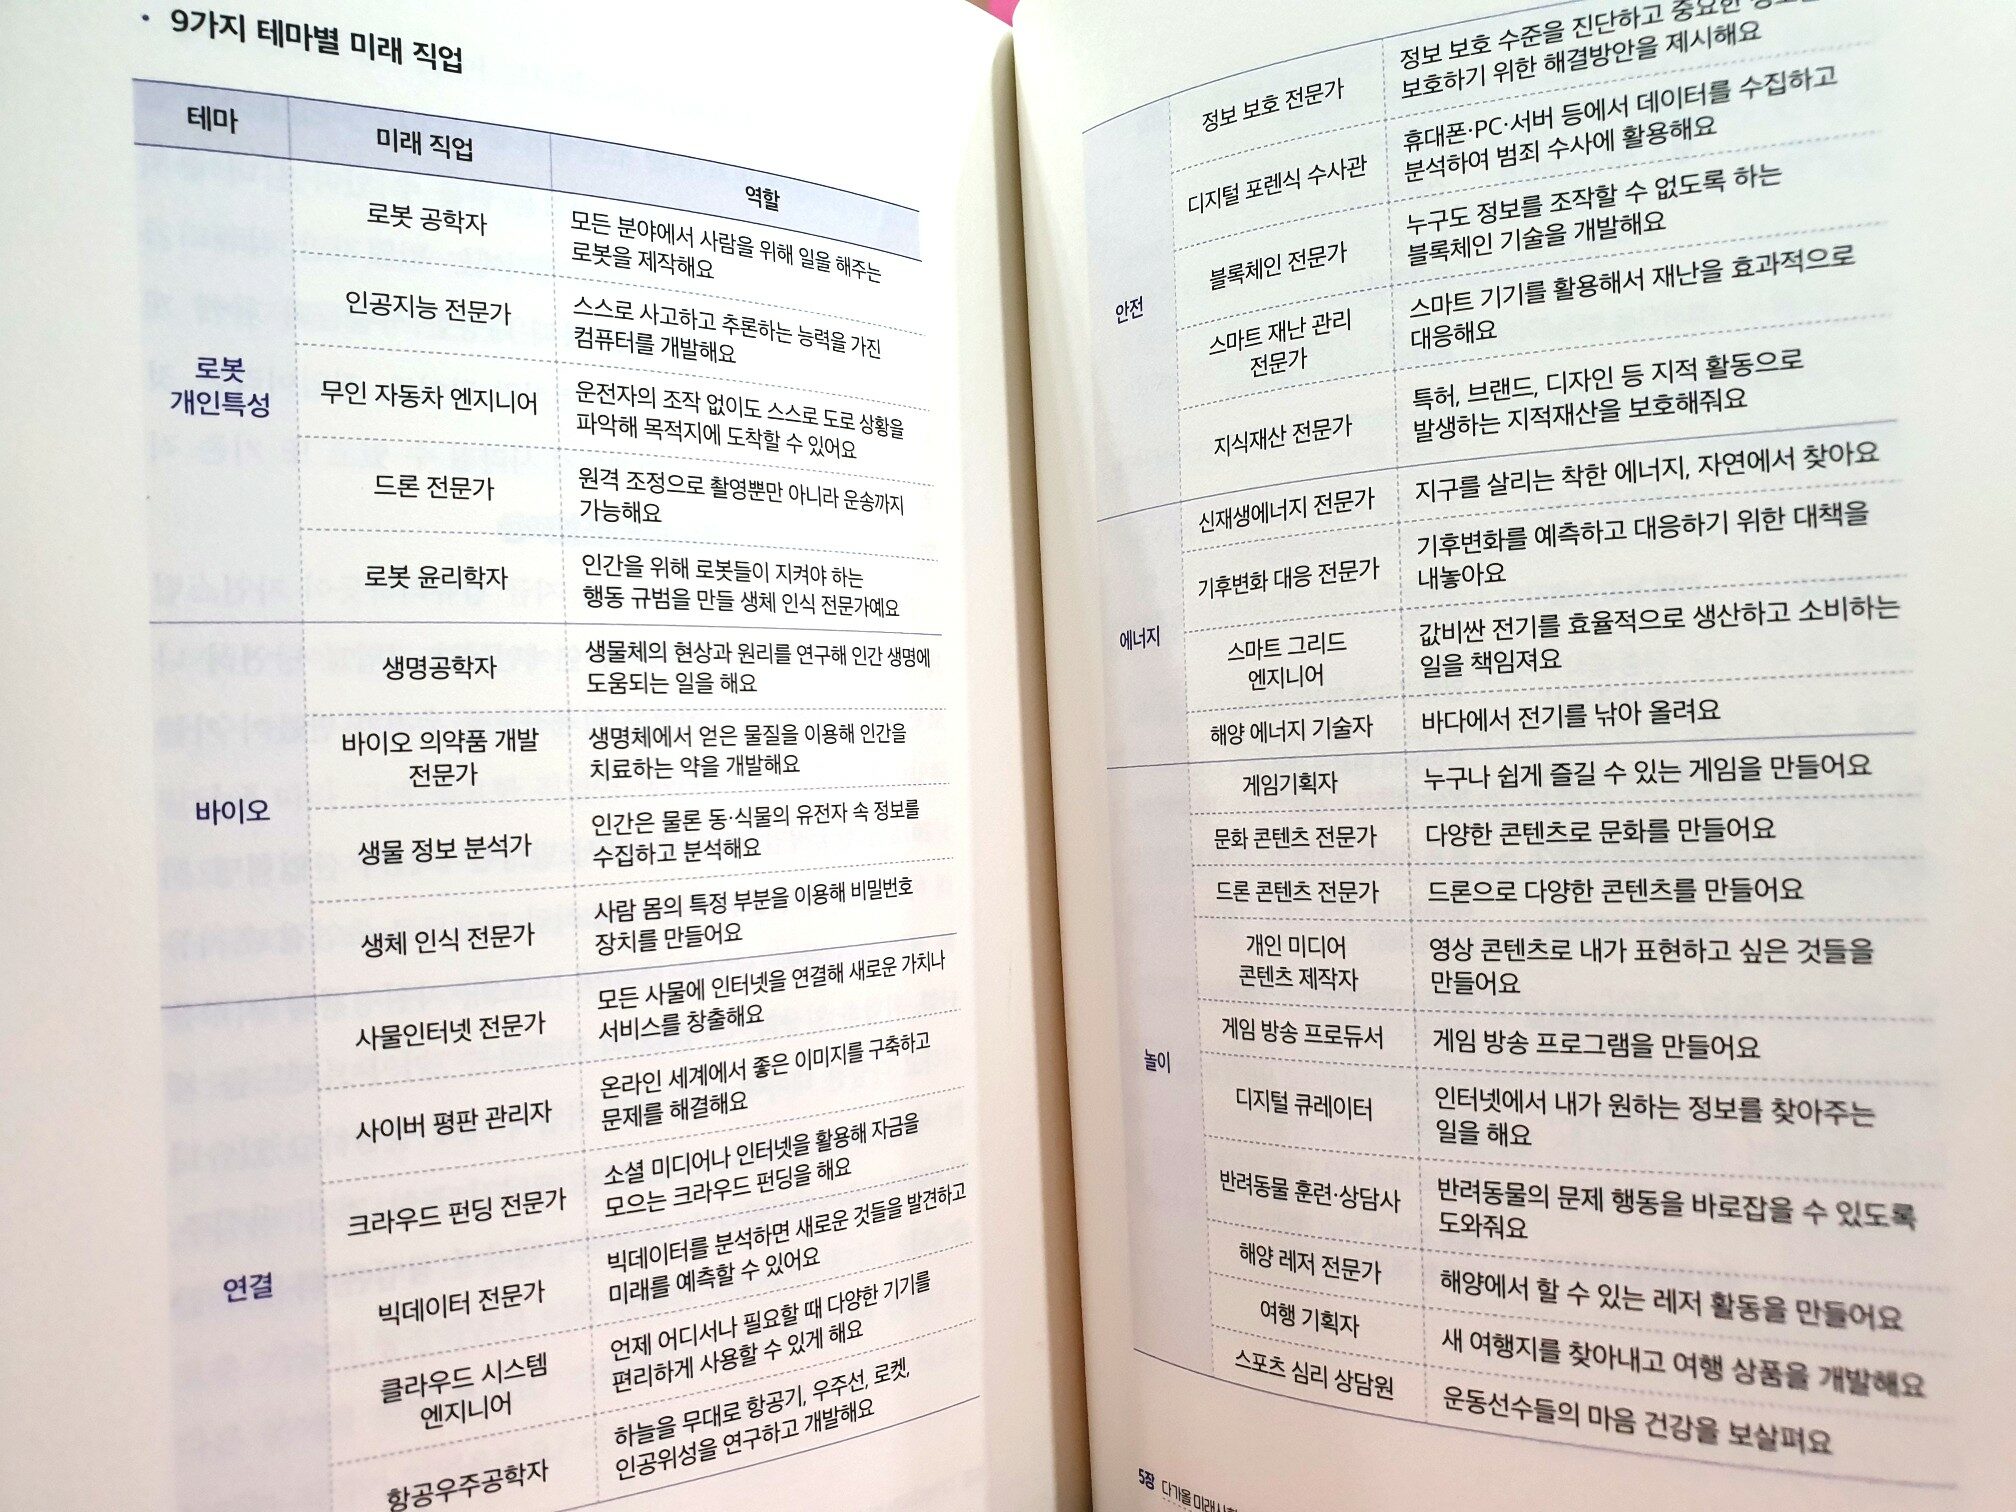 • 9가지 테마별 미래 직업
테마 미래 직업 역할
로봇
개인특성
로봇 공학자
모든 분야에서 사람을 위해 일을 해주는
로봇을 제작해요
인공지능 전문가
스스로 사고하고 추론하는 능력을 가진
컴퓨터를 개발해요
무인 자동차 엔지니어
운전자의 조작 없이도 스스로 도로 상황을
파악해 목적지에 도착할 수 있어요
드론 전문가
원격 조정으로 촬영뿐만 아니라 운송까지
가능해요
로봇 윤리학자
인간을 위해 로봇들이 지켜야 하는
행동 규범을 만들 생체 인식 전문가예요
바이오
생명공학자
생물체의 현상과 원리를 연구해 인간 생명에
도움되는 일을 해요
바이오 의약품 개발
전문가
생명체에서 얻은 물질을 이용해 인간을
치료하는 약을 개발해요
생물 정보 분석가
인간은 물론 동·식물의 유전자 속 정보를
수집하고 분석해요
생체 인식 전문가
사람 몸의 특정 부분을 이용해 비밀번호
장치를 만들어요
연결
사물인터넷 전문가
모든 사물에 인터넷을 연결해 새로운 가치나
서비스를 창출해요
사이버 평판 관리자
온라인 세계에서 좋은 이미지를 구축하고
문제를 해결해요
크라우드 펀딩 전문가
소셜 미디어나 인터넷을 활용해 자금을
모으는 크라우드 펀딩을 해요
빅데이터 전문가
빅데이터를 분석하면 새로운 것들을 발견하고
미래를 예측할 수 있어요
클라우드 시스템
엔지니어
언제 어디서나 필요할 때 다양한 기기를
편리하게 사용할 수 있게 해요
항공우주공학자
하늘을 무대로 항공기, 우주선, 로켓,
인공위성을 연구하고 개발해요
안전
정보 보호 전문가
정보 보호 수준을 진단하고 중요한
보호하기 위한 해결방안을 제시해요
디지털 포렌식 수사관
휴대폰·PC·서버 등에서 데이터를 수집하고
분석하여 범죄 수사에 활용해요
블록체인 전문가
누구도 정보를 조작할 수 없도록 하는
블록체인 기술을 개발해요
스마트 재난 관리
전문가
스마트 기기를 활용해서 재난을 효과적으로
대응해요
지식재산 전문가
특허, 브랜드, 디자인 등 지적 활동으로
발생하는 지적재산을 보호해줘요
에너지
신재생에너지 전문가
지구를 살리는 착한 에너지, 자연에서 찾아요
기후변화 대응 전문가
기후변화를 예측하고 대응하기 위한 대책을
내놓아요
스마트 그리드
엔지니어
값비싼 전기를 효율적으로 생산하고 소비하는
일을 책임져요
해양 에너지 기술자
바다에서 전기를 낚아 올려요
놀이
게임기획자
누구나 쉽게 즐길 수 있는 게임을 만들어요
문화 콘텐츠 전문가
다양한 콘텐츠로 문화를 만들어요
드론 콘텐츠 전문가
드론으로 다양한 콘텐츠를 만들어요
개인 미디어
콘텐츠 제작자
영상 콘텐츠로 내가 표현하고 싶은 것들을
만들어요
게임 방송 프로듀서
게임 방송 프로그램을 만들어요
디지털 큐레이터
인터넷에서 내가 원하는 정보를 찾아주는
일을 해요
반려동물 훈련·상담사
반려동물의 문제 행동을 바로잡을 수 있도록
도와줘요
해양 레저 전문가
해양에서 할 수 있는 레저 활동을 만들어요
여행 기획자
새 여행지를 찾아내고 여행 상품을 개발해요
스포츠 심리 상담원
운동선수들의 마음 건강을 보살펴요
5장 다가올 미래사회